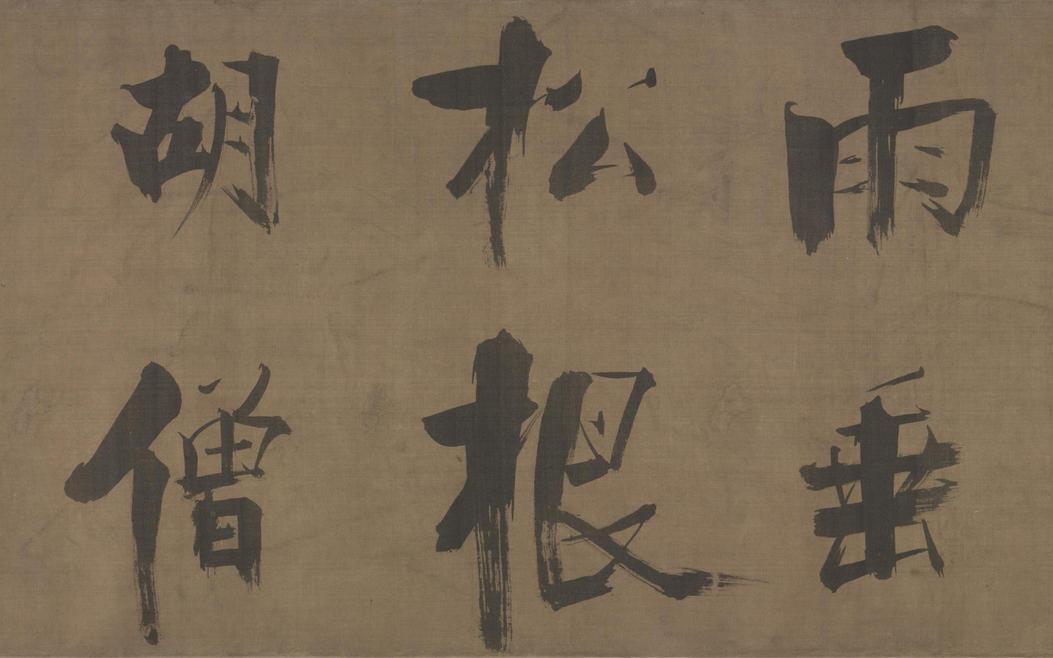 雨垂
松根
胡僧